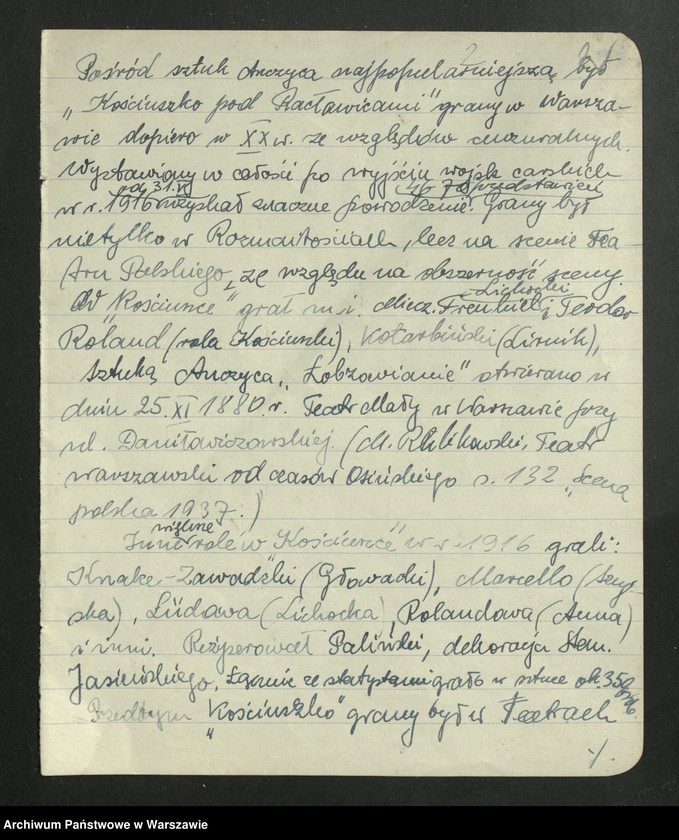 Pośród sztuk Anczyca najpopularniejszą był
"Kościuszko pod Racławicami" grany w Warsza-
wie dopiero w XX w. ze względów cenzuralnych.
Wystawiony w całości po wyjściu wojsk carskich
od 31.VI 76 przedstawień
w r. 1916 uzyskał znaczne powodzenie. Grany był
nietylko w Rozmaitościach, lecz na scenie Tea-
tru Polskiego, ze względu na obszerność sceny.
Lichocki
W "Kościuszce" grał m.i. Miecz. Frenkiel i Teodor
Roland (rola Kościuszki), Kotarbiński (Lirnik),
Sztuką Anczyca "Łobzowianie" otwierano w
dniu 25.XI 1880.r. Teatr Mały w Warszawie przy
ul. Daniławiczowskiej. (M. Rulikowski, Teatr
warszawski od czasów Osińskiego s. 132 "Scena
polska 1937.)
większe
Inne role w Kościuszce" w r. 1916 grali:
Knake-Zawadzki (Głowacki), Marcello (Szuj-
ska), Lüdowa (Lichocka), Rolandowa (Anna)
i inni. Reżyserował Paliński, dekoracja Stan.
Jasieńskiego. Łącznie ze statystami grało w sztuce ok. 350 osób.
Przedtym "Kościuszko" grany był w Teatrach
./.
Archiwum Państwowe w Warszawie